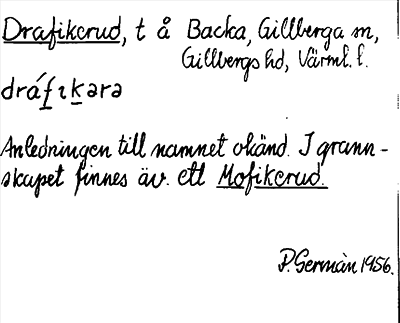 Drafikerud, t å Backa, Gillberga sn,
Gillbergs hd, Värml. l.
dráfıkərə
Anledningen till namnet okänd. I grann-
skapet finnes äv. ett Mofikerud.
P. Germàn 1956.